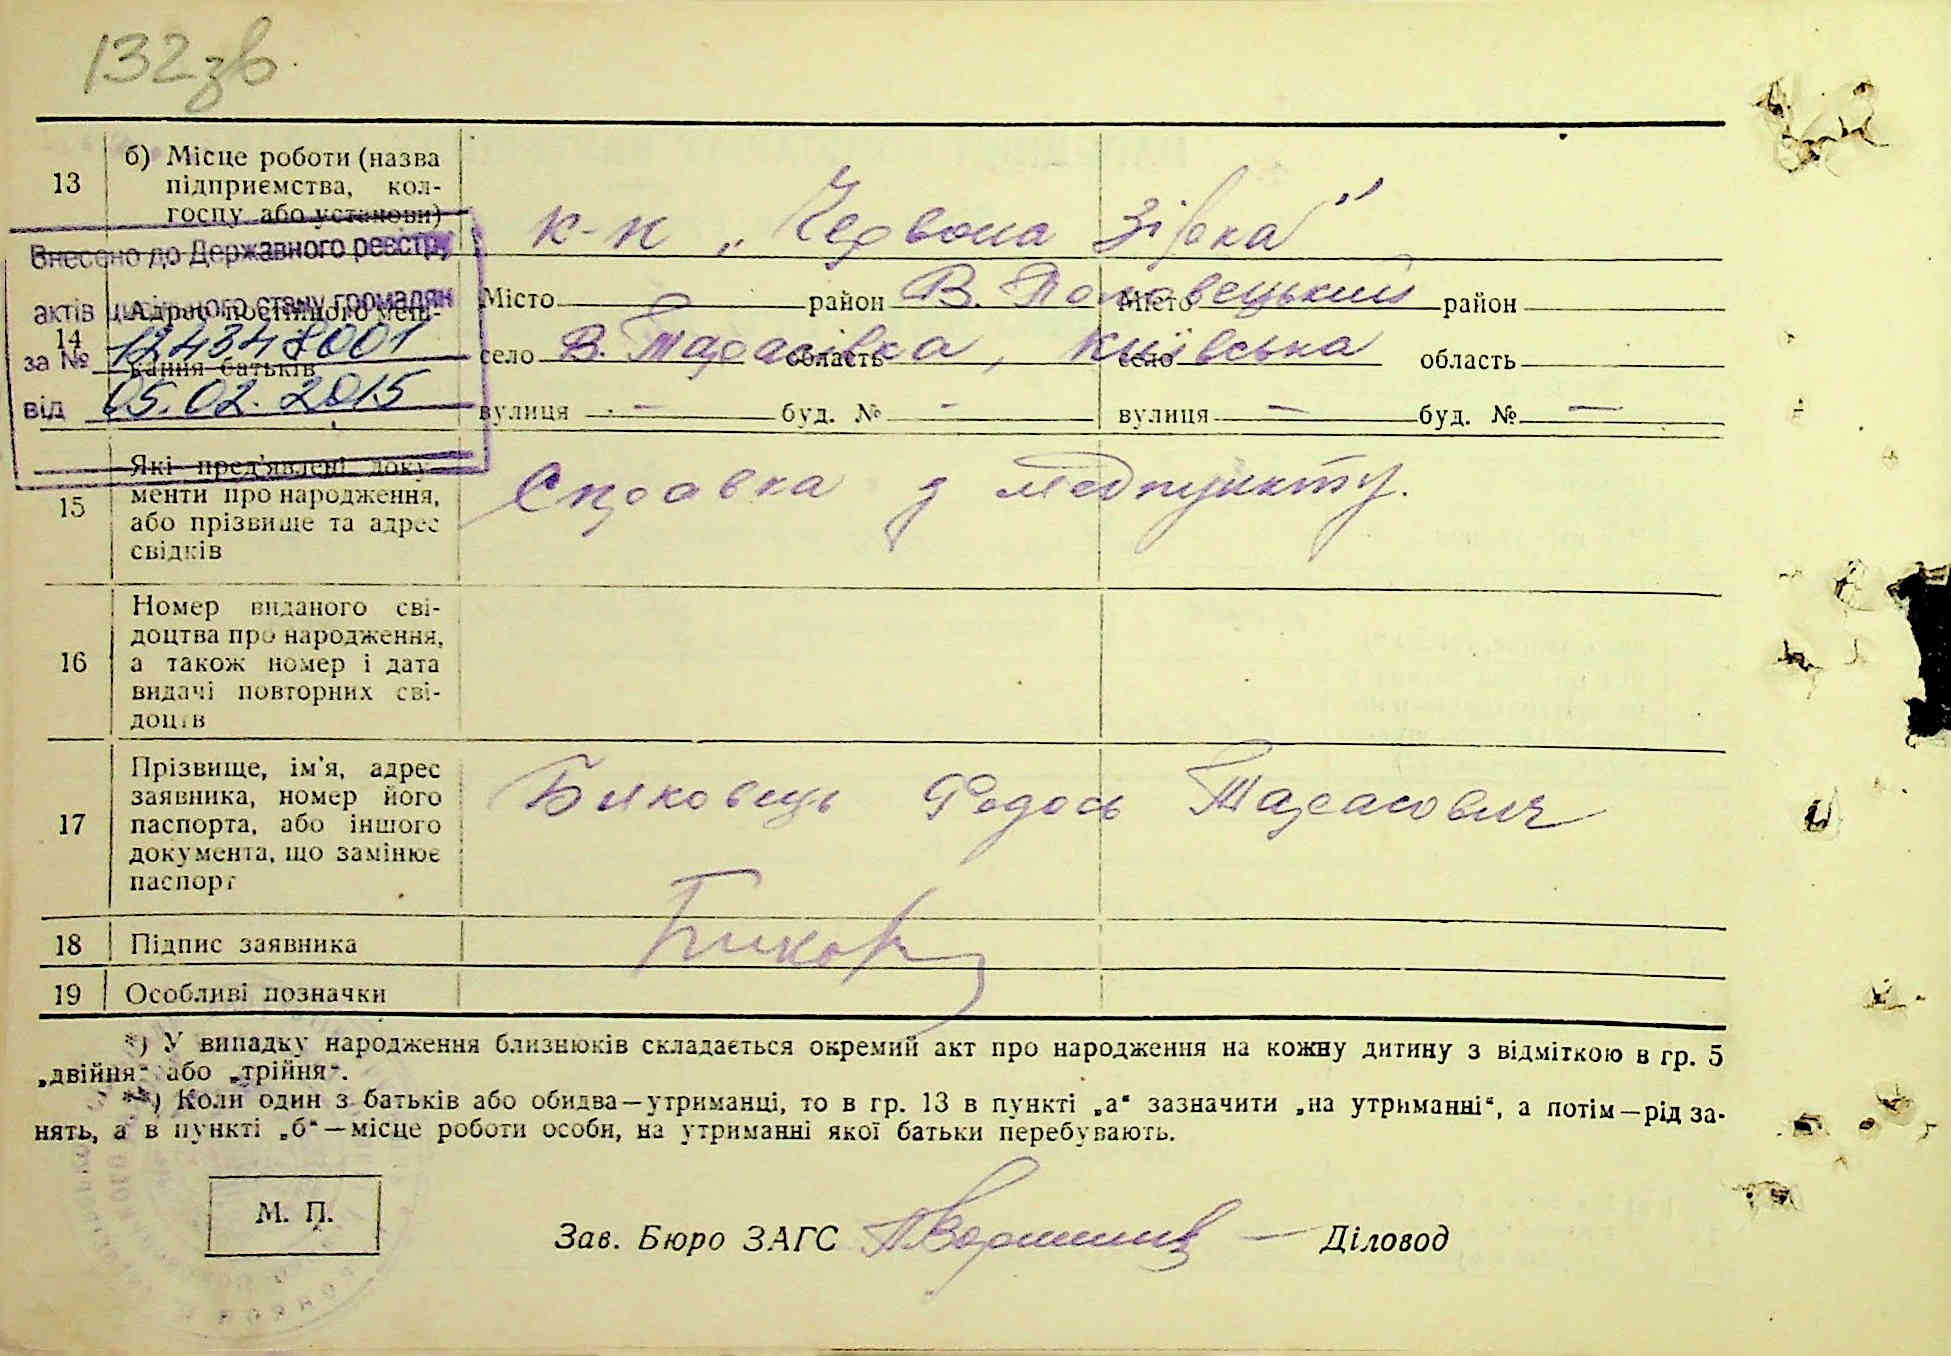 132 зв.
13 б) Місце роботи (назва
підприємства, кол-
госпу або установи)
к-п „Червона Зірка"
Внесено до Державного реєстру
актів цивільного стану громадян
за № 12434 8001
від 05.02.2015
14 Адрес постійного меш-
кання батьків
Місто район В. Половецький Місто район
село В. Тарасівка, область Київська село область
вулиця — буд. № — вулиця — буд. № —
15 Які пред'явлені доку-
менти про народження,
або прізвище та адрес
свідків
Справка з медпункту.
16 Номер виданого сві-
доцтва про народження,
а також номер і дата
видачі повторних сві-
доцтв
17 Прізвище, ім'я, адрес
заявника, номер його
паспорта, або іншого
документа, що замінює
паспорт
Биковець Федось Тарасович
18 Підпис заявника
19 Особливі позначки
*) У випадку народження близнюків складається окремий акт про народження на кожну дитину з відміткою в гр. 5
„двійня" або „трійня".
**) Коли один з батьків або обидва—утриманці, то в гр. 13 в пункті „а" зазначити „на утриманні", а потім—рід за-
нять, а в пункті „б"—місце роботи особи, на утриманні якої батьки перебувають.
М. П.
Зав. Бюро ЗАГС — Діловод